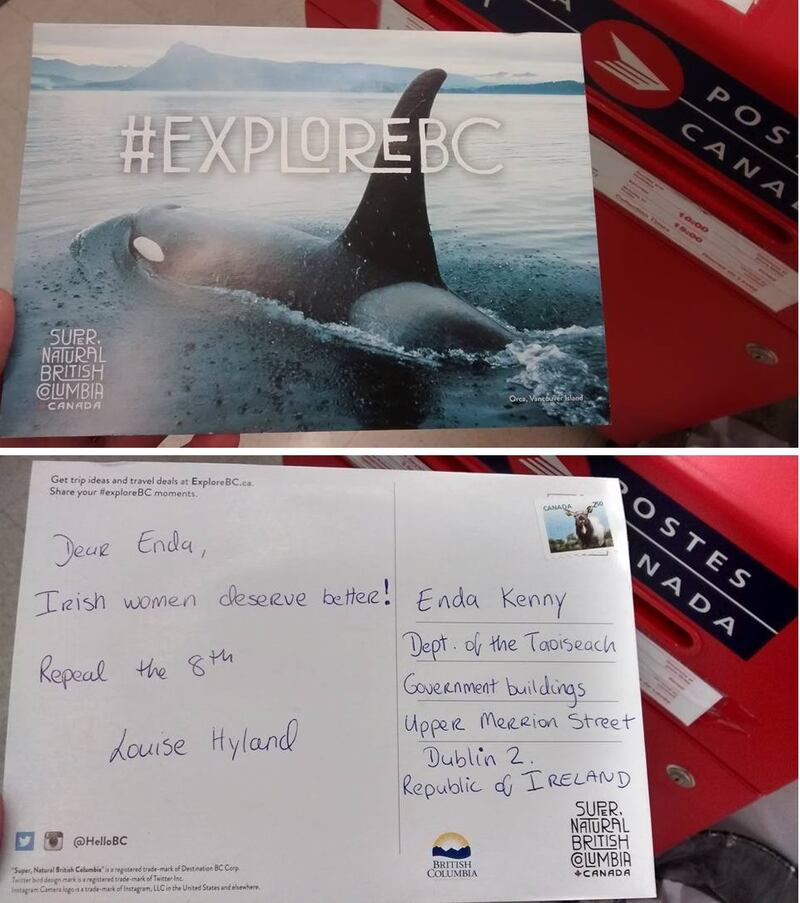 #EXPLOREBC
POS
CANA
10:00
18:00
SUPER,
NATURAL
BRITISH
COLUMBIA
CANADA
Orca, Vancouver Island
Get trip ideas and travel deals at ExploreBC.ca.
Share your #exploreBC moments.
CANADA 250
POSTES
NADA
Dear Enda,
Irish women deserve better!
Repeal the 8th
Louise Hyland
Enda Kenny
Dept. of the Taoiseach
Government buildings
Upper Merrion Street
Dublin 2.
Republic of IRELAND
@HelloBC
BRITISH
COLUMBIA
SUPER,
NATURAL
BRITISH
COLUMBIA
CANADA
"Super, Natural British Columbia" is a registered trade-mark of Destination BC Corp.
Twitter bird design mark is a registered trade-mark of Twitter Inc.
Instagram Camera logo is a trade-mark of Instagram, LLC in the United States and elsewhere.